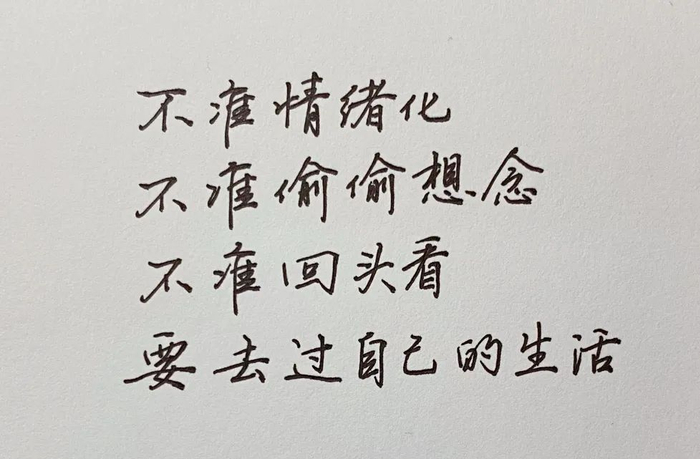 不准情绪化
不准偷偷想念
不准回头看
要去过自己的生活